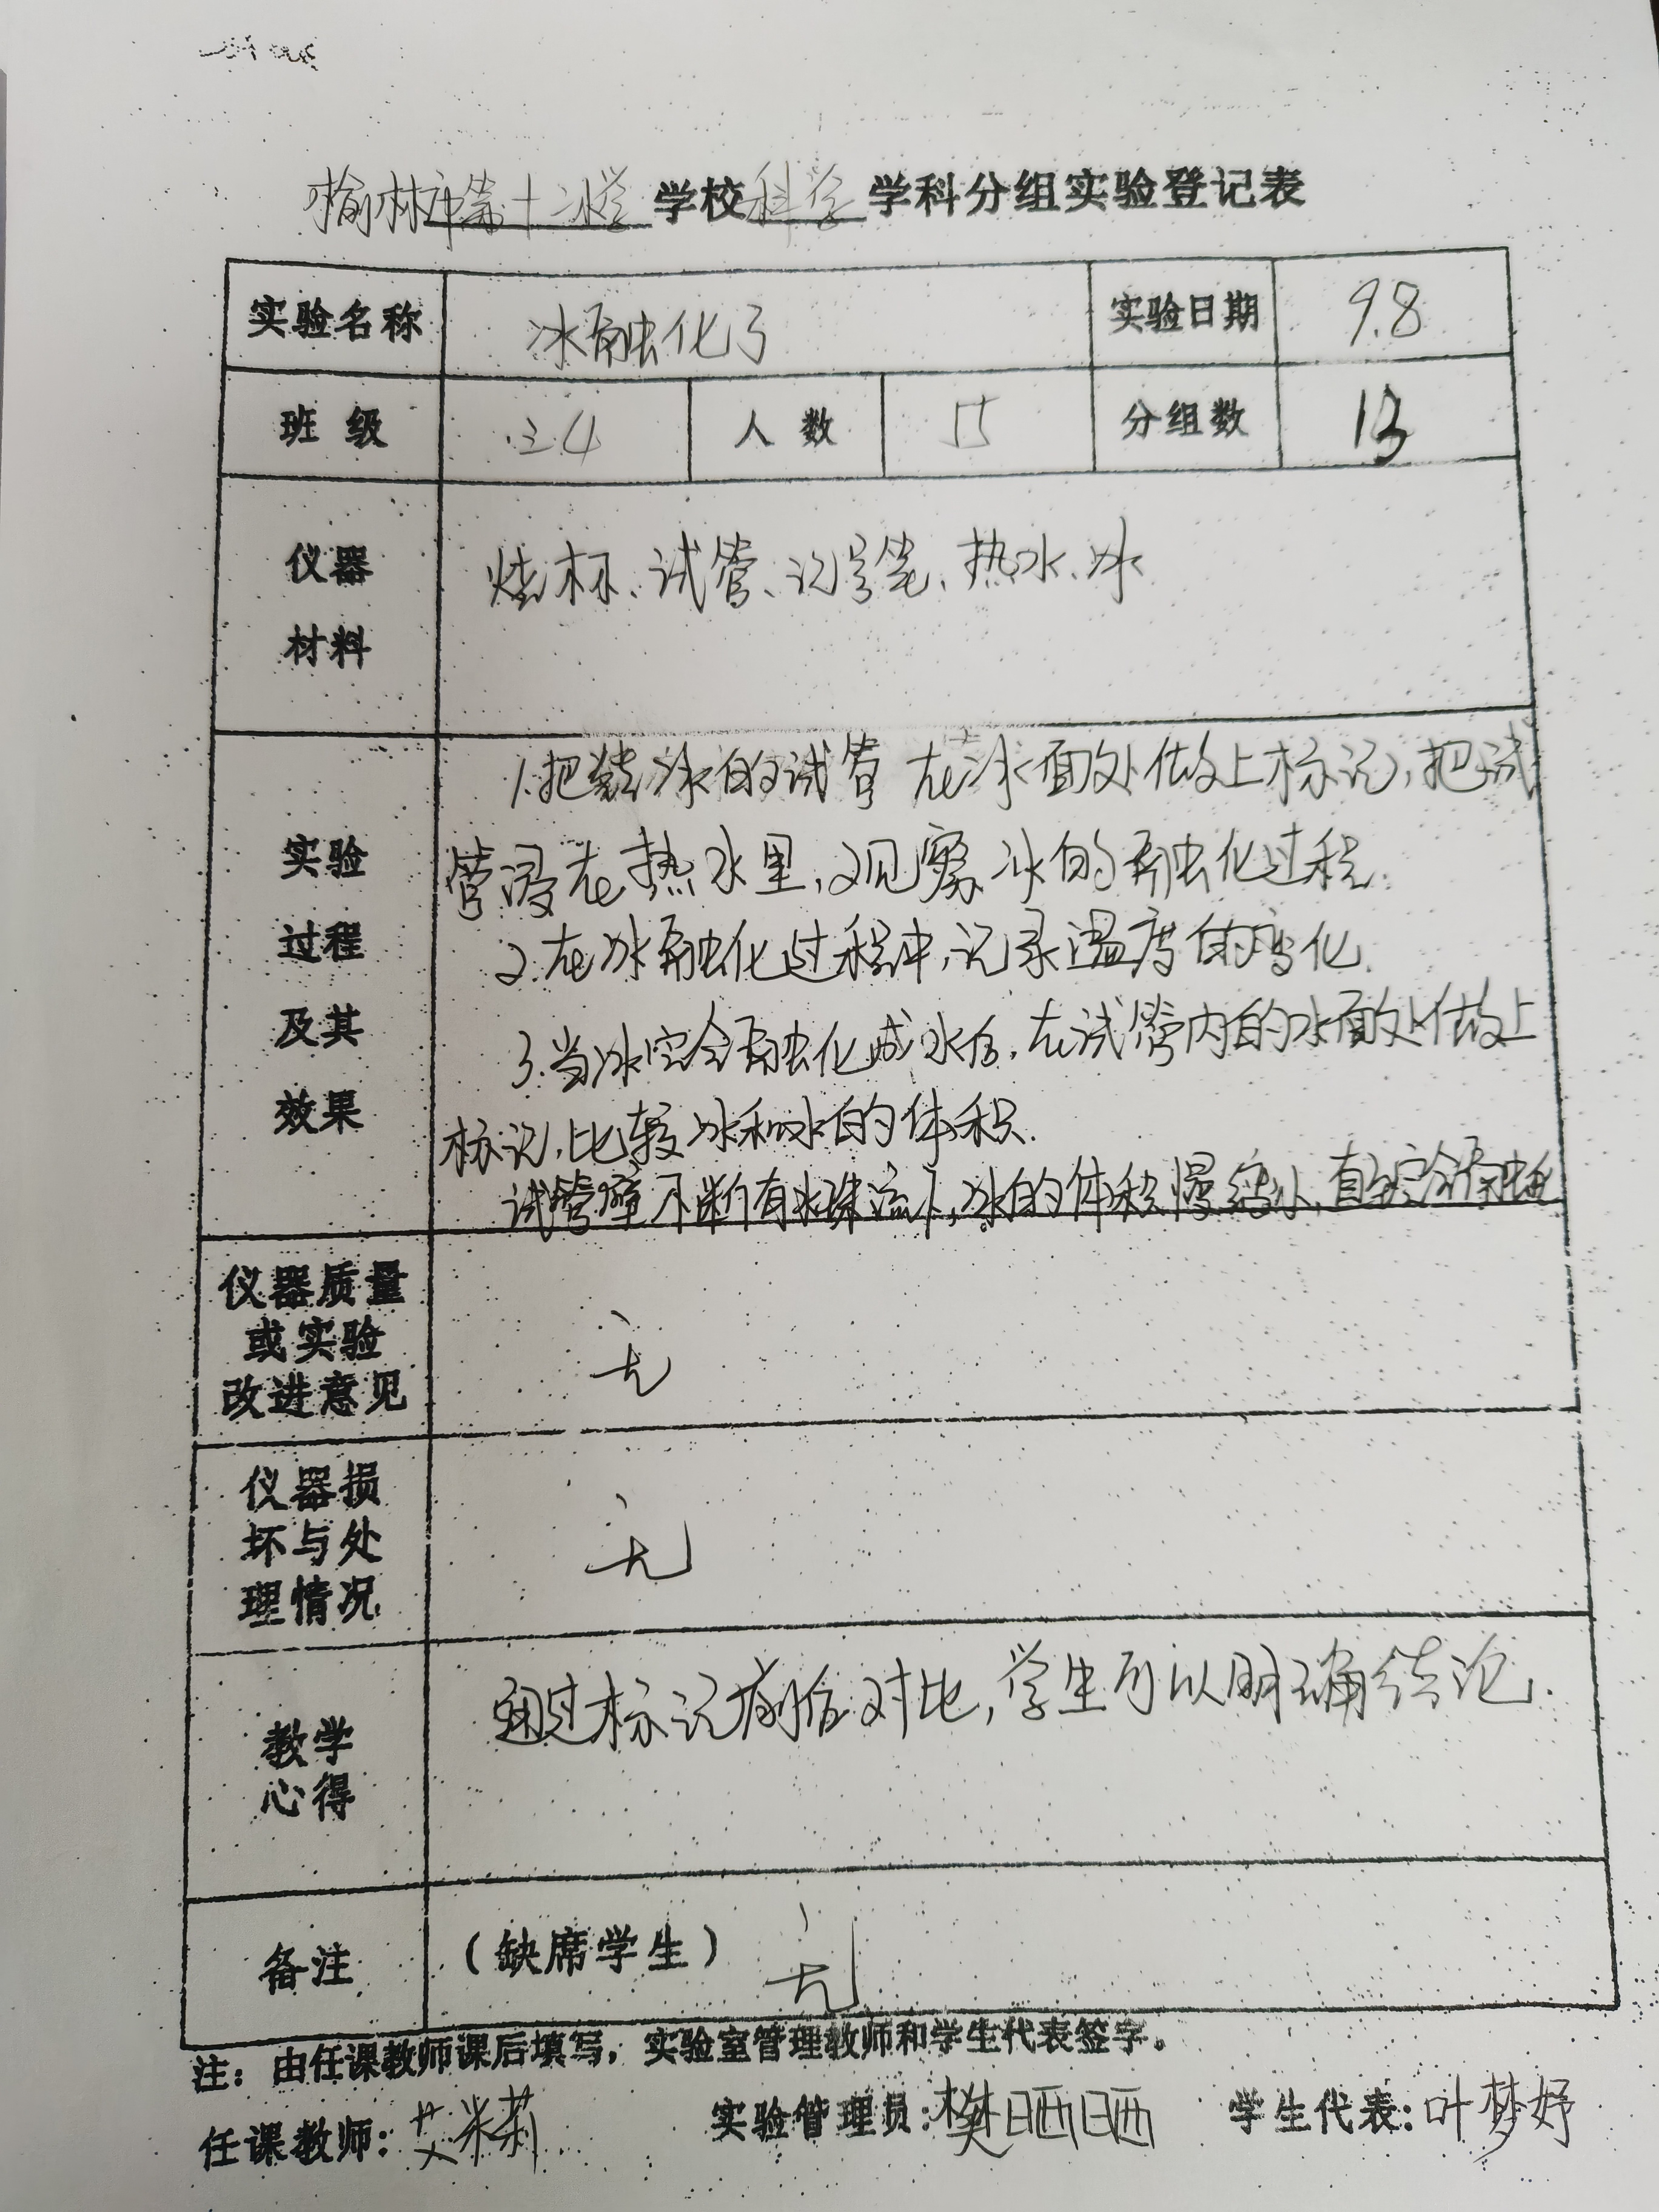 榆林市第十小学学校科学学科分组实验登记表
实验名称 冰融化了 实验日期 9.8
班级 三4 人数 55 分组数 13
仪器
材料
烧杯、试管、记号笔、热水、冰
实验
过程
及其
效果
1.把装冰的试管在冰面处做上标记,把试
管浸在热水里,观察冰的融化过程.
2.在冰融化过程中,记录温度的变化.
3.当冰完全融化成水后,在试管内的水面处做上
标记,比较冰和水的体积.
试管壁不断有水珠流下,冰的体积慢慢变小,直到完全融化
仪器质量
或实验
改进意见
无
仪器损
坏与处
理情况
无
教学
心得
通过标记前后对比,学生可以明确结论.
备注 (缺席学生) 无
注:由任课教师课后填写,实验室管理教师和学生代表签字。
任课教师:艾米莉 实验管理员:樊晒晒 学生代表:叶梦妤